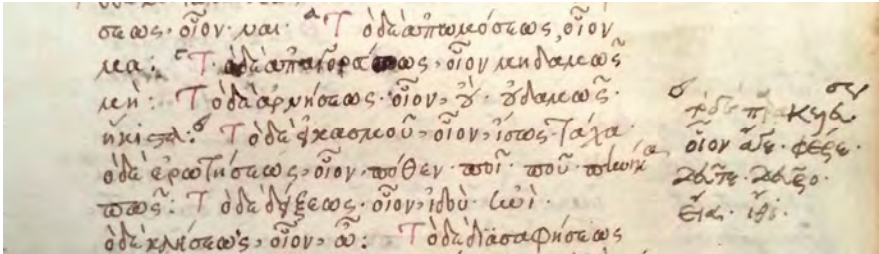 σεως, οἷον· ναι· Τὸ δὲ ἀπωμόσεως, οἷον
μα: Τὸ δὲ ἀπαγορεύσεως, οἷον μηδαμῶς
μή: Τὸ δὲ ἀρνήσεως· οἷον, οὐ· οὐδαμῶς·
ἥκιστα: Τὸ δὲ εἰκασμοῦ, οἷον, ἴσως· τάχα·
ὁ δὲ ἐρωτήσεως, οἷον, πόθεν· ποῖ· ποῦ·
πῶς: Τὸ δὲ δείξεως· οἷον, ἰδοὺ·
ὁ δὲ κλήσεως, οἷον, ὦ: Τὸ δὲ διασαφήσεως
οἷον ἄγε· φέρε·
εἶα· ἴθι·